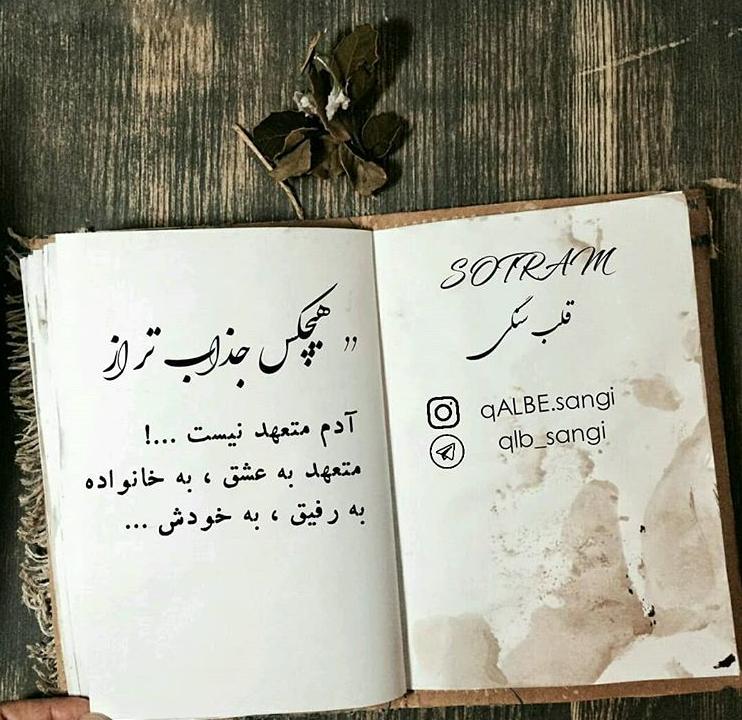 ” هیچکس جذاب تر از
آدم متعهد نیست ...!
متعهد به عشق ، به خانواده
به رفیق ، به خودش ...
SOTRAM
قلب سنگی
qALBE.sangi
qlb_sangi